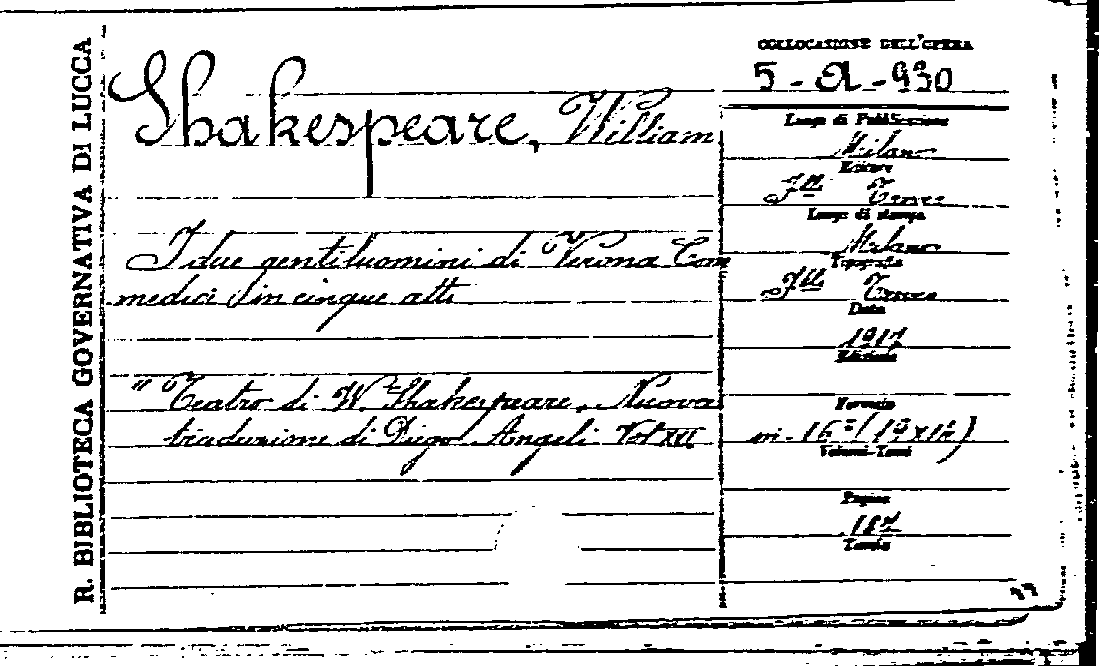 R. BIBLIOTECA GOVERNATIVA DI LUCCA
Shakespeare, William
I due gentiluomini di Verona Com
media in cinque atti
"Teatro di W. Shakespeare. Nuova
traduzione di Diego Angeli Vol XII
COLLOCAZIONE DELL'OPERA
5 - A - 930
Luogo di Pubblicazione
Milano
Editore
F.lli Treves
Luogo di stampa
Milano
Tipografia
F.lli Treves
Data
1917
Edizione
Formato
in-16° (19x12)
Volumi-Tomi
Pagine
187
Tavole